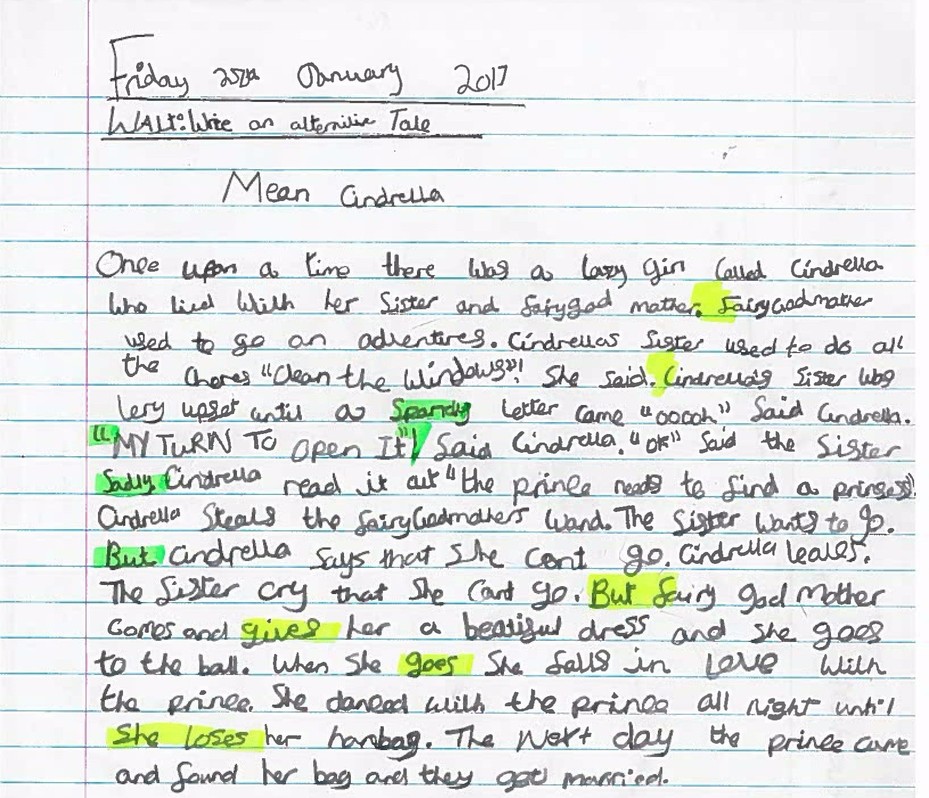 Friday 25th January 2017
WALT: Write an alternitive Tale
Mean Cindrella
Once upon a time there was a lazy girl called Cindrella
who lived with her Sister and fairygod mother. FairyGodmother
used to go on adventures. Cindrellas Sister used to do all
the chores "Clean the windows"! She said. Cindrella's Sister was
very upset until a Sparcly letter came "ooooh" Said Cindrella.
"MY TURN TO open It!" Said Cindrella. "OK" Said the Sister
Sadly Cindrella read it out "the prince needs to find a princess".
Cindrella Steals the fairyGodmothers wand. The Sister wants to go.
But Cindrella says that she cant go. Cindrella leaves.
The Sister cry that she cant go. But fairy god Mother
comes and gives her a beatiful dress and she goes
to the ball. When She goes She falls in Love with
the prince. She danced with the prince all night until
She loses her hanbag. The Next day the prince came
and found her bag and they got married.